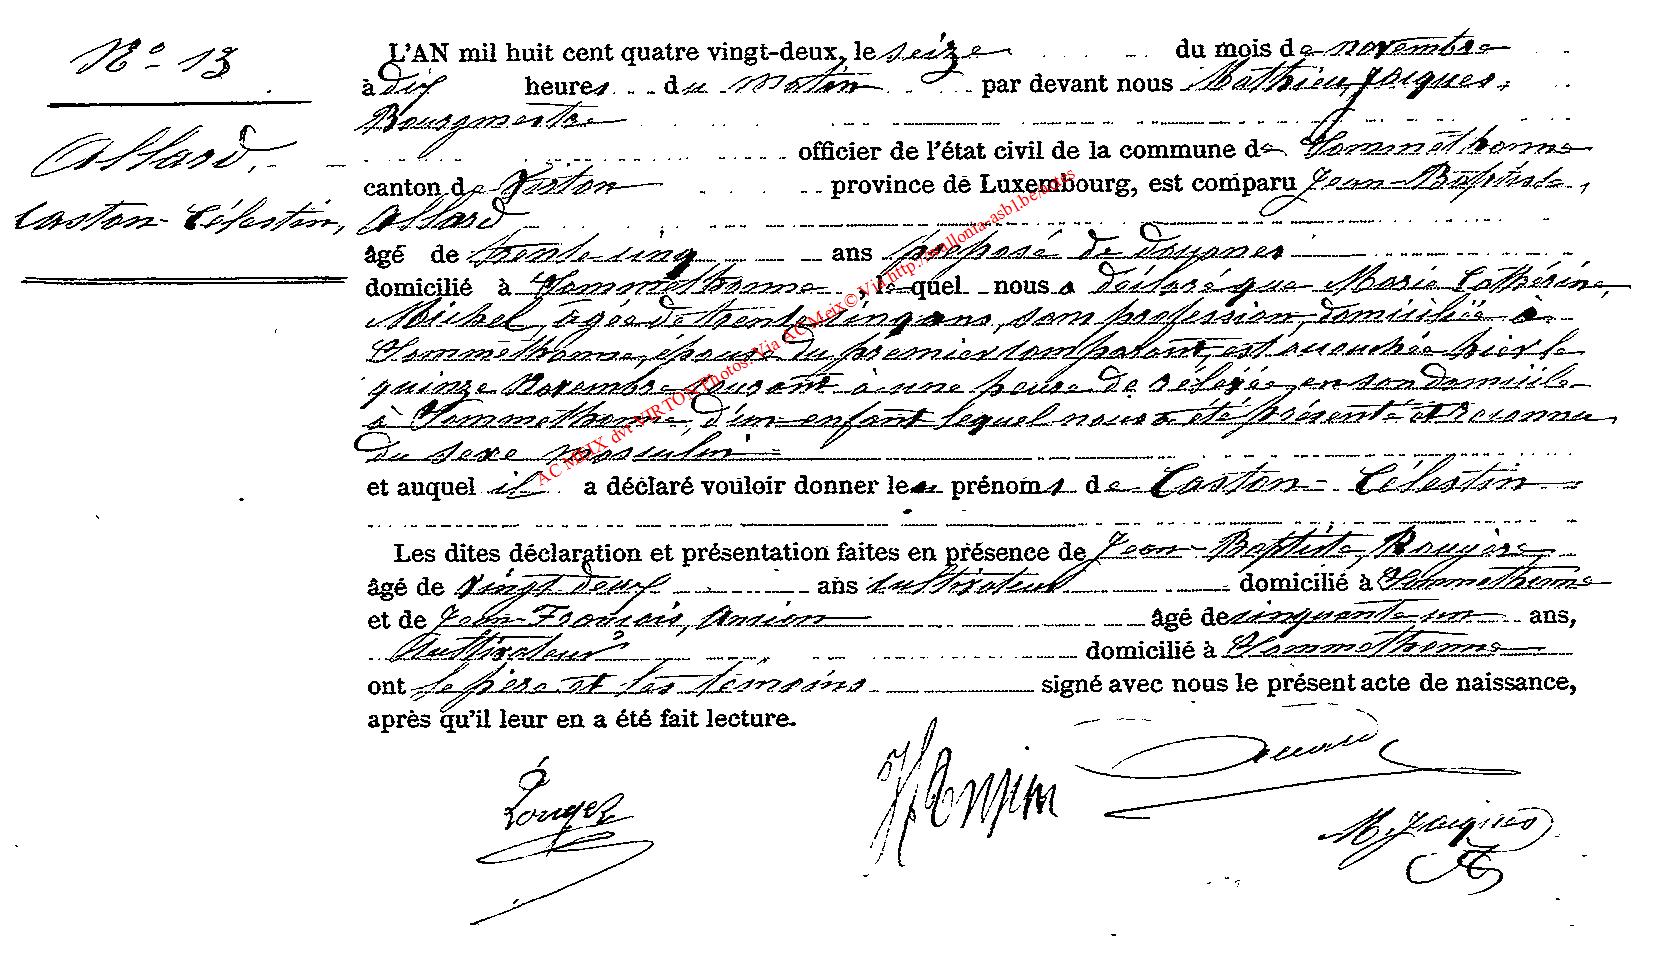 N° 13
Allard.
Gaston-Célestin,
L'AN mil huit cent quatre vingt-deux, le seize du mois de novembre
à dix heures du matin par devant nous Mathieu Jaiques,
Bourgmestre
officier de l'état civil de la commune de Sommethonne
canton de Virton province de Luxembourg, est comparu Jean-Baptiste,
Allard
âgé de trente cinq ans préposé de douanes
domicilié à Sommethonne, lequel nous a déclaré que Marie Cathérine,
Michel, agée de trente cinq ans, sans profession, domiciliée à
Sommethonne, épouse du premier comparant, est accouchée hier le
quinze Novembre courant à une heure de rélevée, en son domicile
à Sommethonne, d'un enfant lequel nous a été présenté et reconnu
du sexe masculin
et auquel il a déclaré vouloir donner les prénoms de Gaston-Célestin
Les dites déclaration et présentation faites en présence de Jean-Baptiste, Rouyère
âgé de vingt deux ans cultivateur domicilié à Sommethonne
et de Jean-François, Ansion âgé de cinquante un ans,
cultivateur domicilié à Sommethonne
ont le père et les témoins signé avec nous le présent acte de naissance,
après qu'il leur en a été fait lecture.
M. Jaiques
AC MEIX dvt VIRTON Photos: Via AC Meix© Via http://wallonia-asbl.be/actes